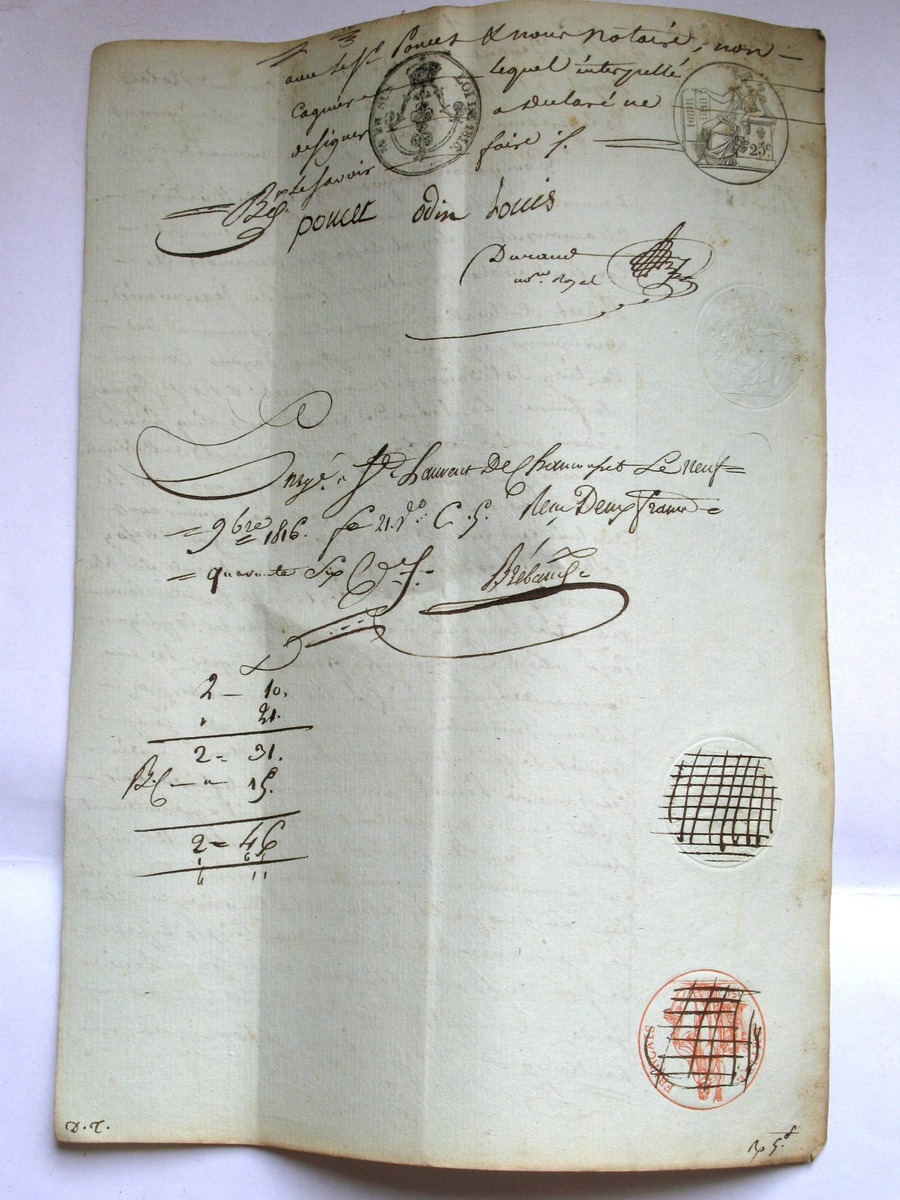 avec le Sr. Poncet & nous Notaire, non
Coquier lequel interpellé
de signer a déclaré ne
le savoir faire ./.
EN SUS LOI DE 1816.
25c.
poncet odin Louis
Durand
nore. Royal
St. Laurent De Chamousset Le neuf =
= 9bre 1816. fo 21. vo. C. 5. Reçu Deux francs =
= quarante Six
2 — 10.
" 21.
2 = 31.
15.
2 = 46
D. T.